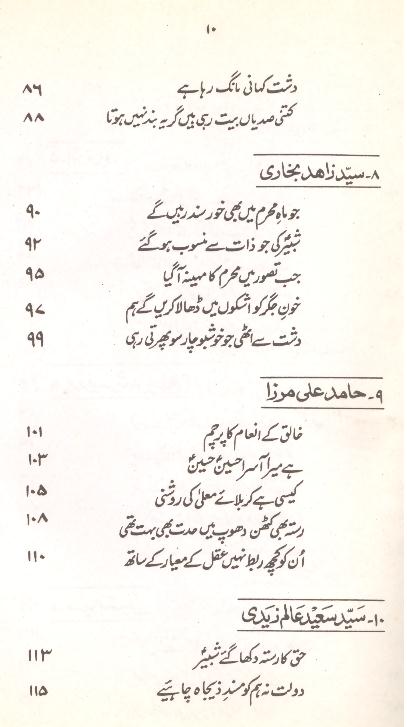 ۱۰
دشت کہانی مانگ رہا ہے ۸۶
کتنی صدیاں بیت رہی ہیں گریہ بند نہیں ہوتا ۸۸
۸۔ سیّد زاھد بخاری
جو ماہِ محرم میں بھی خورسند رہیں گے ۹۰
شبیرؑ کی جو ذات سے منسوب ہو گئے ۹۲
جب تصور میں محرم کا مہینہ آ گیا ۹۵
خونِ جگر کو اشکوں میں ڈھالا کریں گے ہم ۹۷
دشت سے اٹھی جو خوشبو چار سو پھرتی رہی ۹۹
۹۔ حامد علی مرزا
خالق کے انعام کا پرچم ۱۰۱
ہے میرا آسرا حسینؑ حسینؑ ۱۰۳
کیسی ہے کربلائے معلیٰ کی روشنی ۱۰۵
رستہ بھی کٹھن دھوپ میں حدت بھی بہت تھی ۱۰۸
اُن کو کچھ ربط نہیں عقل کے معیار کے ساتھ ۱۱۰
۱۰۔ سَیّد سَعِید عَالم زیدی
حق کا رستہ دکھا گئے شبیرؑ ۱۱۳
دولت نہ ہم کو مسندِ ذیجاہ چاہیئے ۱۱۵